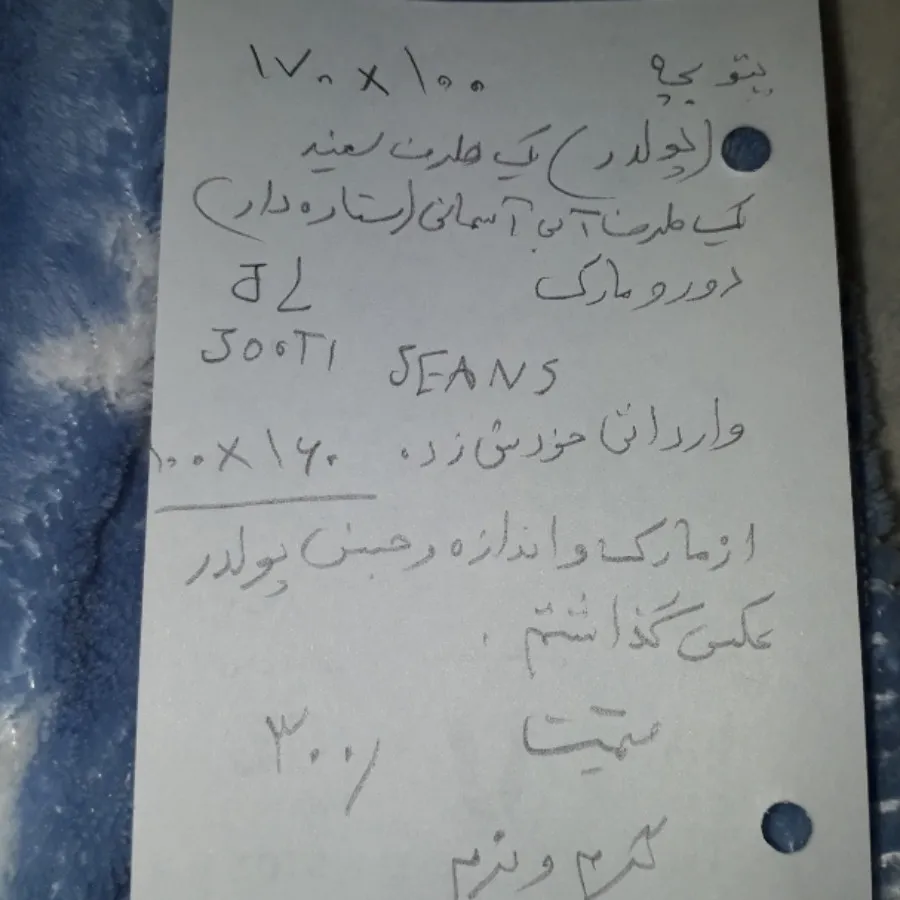 پتو بچه ۱۷۰ x ۱۰۰
(پولدر) یک طرف سفید
یک طرف آبی آسمانی (ستاره دار)
دور و مارک JL
JOOTI JEANS
وارداتی خودش زده ۱۰۰ x ۱۶۰
از مارک و اندازه و جنس پولدر
عکس گذاشتم .
قیمت ۳۰۰/
گرم و نرم